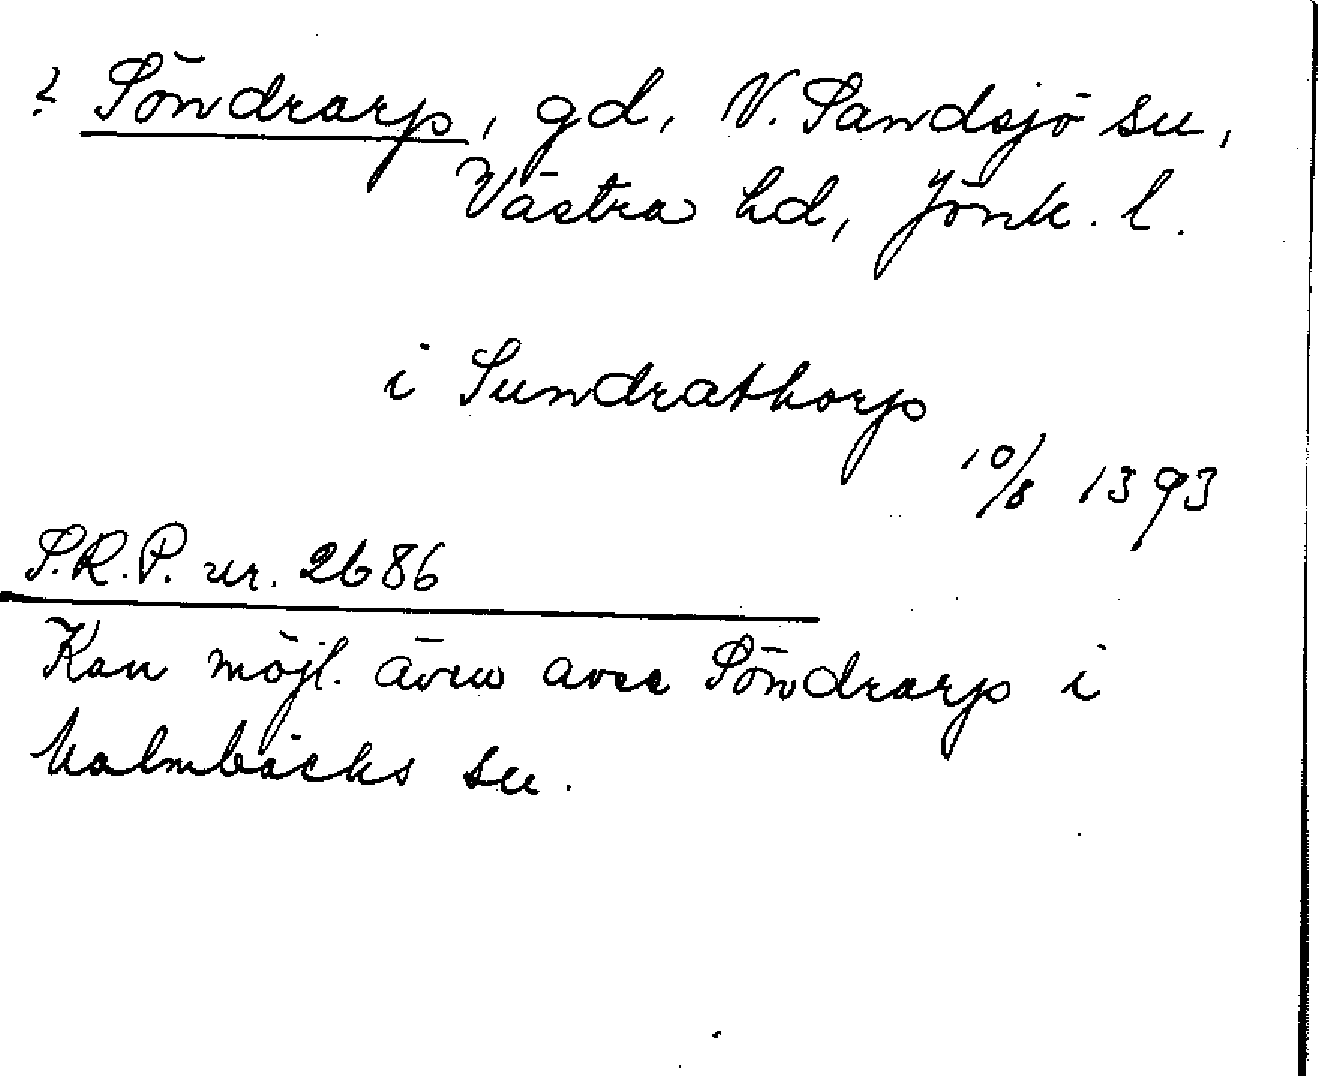 ? Söndrarp, gd, V. Sandsjö sn,
Västra hd, Jönk. l.
i Sundrathorp
10/8 1393
S.R.P. nr. 2686
Kan möjl. även avse Söndrarp i
Malmbäcks sn.